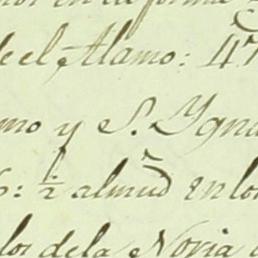 en la forma
de el Alamo: 47
mo y S. Ygna
6: ½ almud en los
los de la Noria